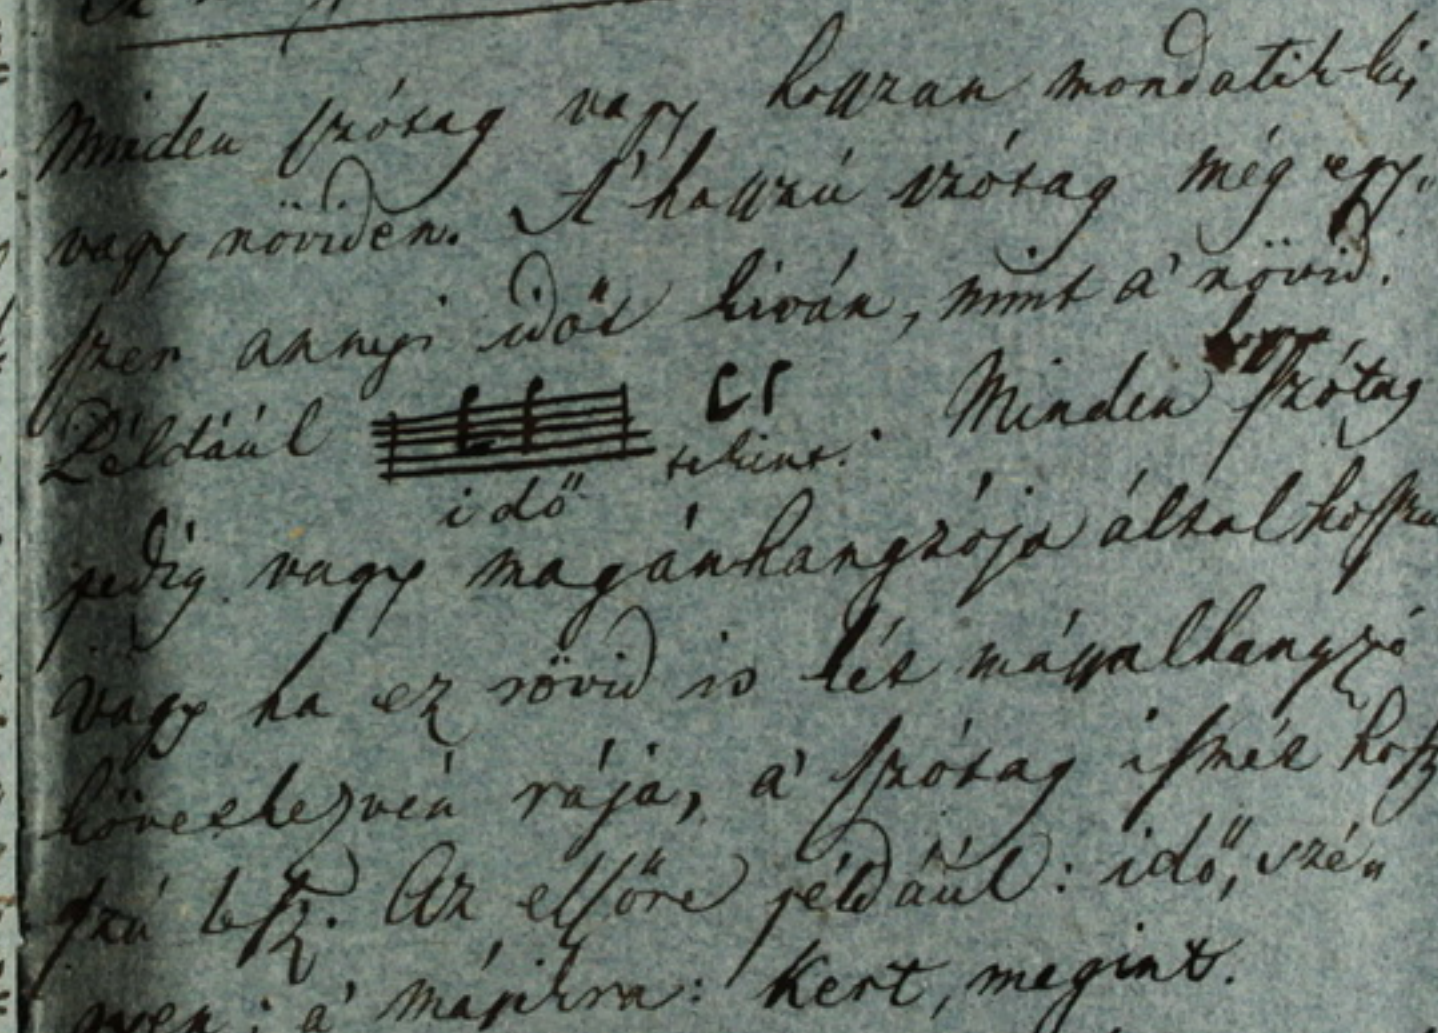 Minden szótag vagy hosszan mondatik-ki,
vagy röviden. A' hosszú szótag még egy-
szer annyi időt kiván, mint a' rövid.
Például
idő
tekint. Minden szótag
pedig vagy magánhangzója által hosszú
vagy ha ez rövid is két mássalhangzó
következvén rája, a' szótag ismét hosz
szú lesz. Az elsőre például: idő, szén
a' másikra: kert, megint.